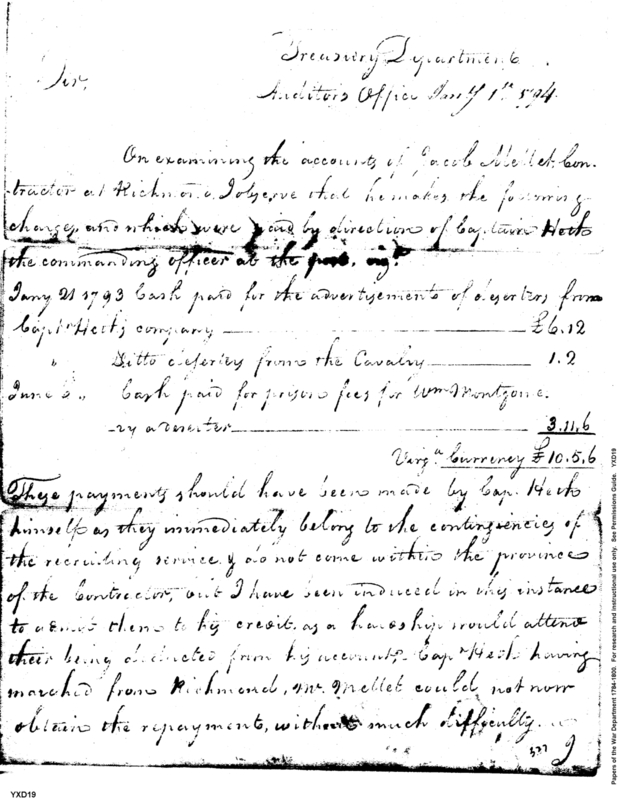 Treasury Department
Sir,
Auditors Office Jany 1st 794.
On examining the accounts of Jacob Mellet Con-
tractor at Richmond, I observe that he makes the following
charges and which were paid by direction of Captain Heth
the commanding officer at the post, vizt
Jany 21 1793 Cash paid for the advertisements of deserters from
Captn Heth's company £6.12
" Ditto deserters from the Cavalry 1.2
June 6 " Cash paid for prison fees for Wm Montgome-
-ry a deserter 3.11.6
Virga Currency £10.5.6
These payments should have been made by Cap. Heth
himself as they immediately belong to the contingencies of
the recruiting service & do not come within the province
of the Contractor, but I have been induced in this instance
to admit them to his credit. as a hardship would attend
their being deducted from his accounts. Capn Heth having
marched from Richmond, Mr. Mellet could not now
obtain the repayment, without much difficulty.
337
I
YXD19
Papers of the War Department 1784-1800. For research and instructional use only. See Permissions Guide. YXD19